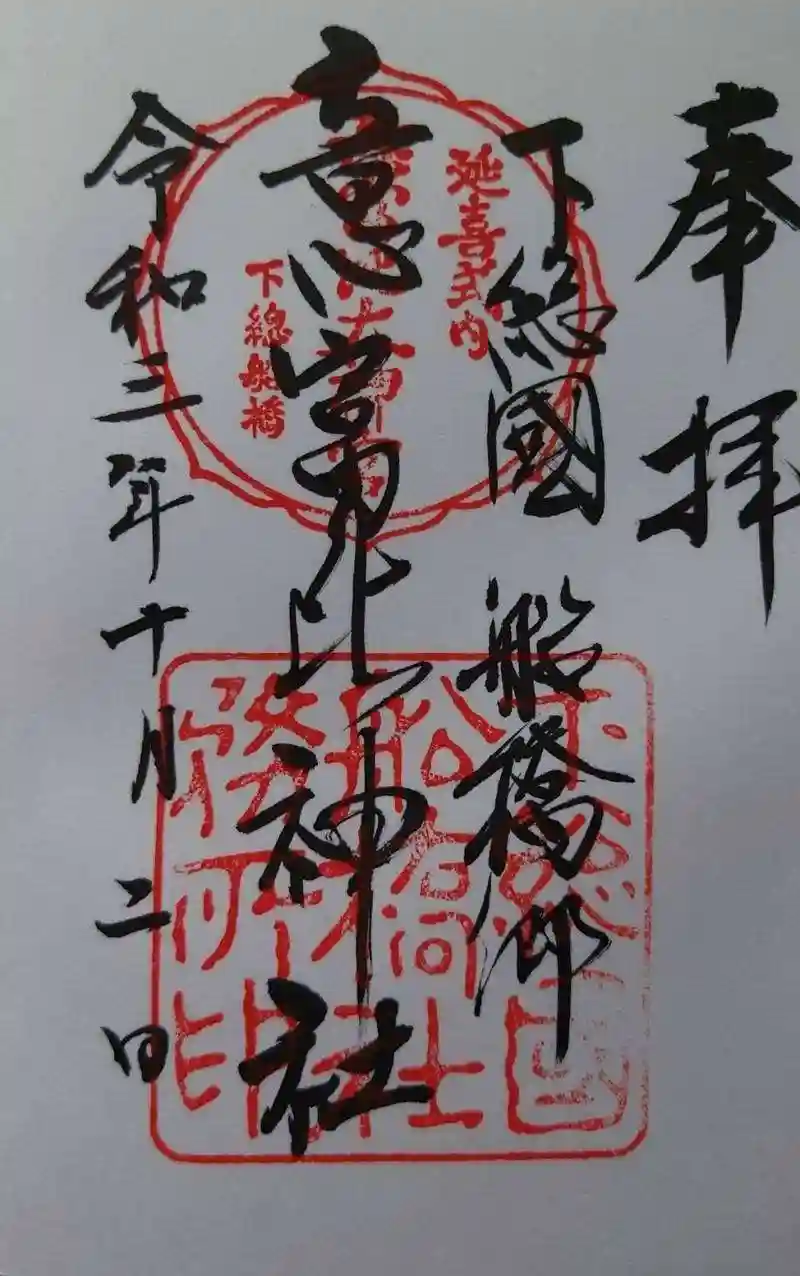 奉拝
下総國船橋郷
意富比神社
令和三年十月二日
延喜式内
下総船橋